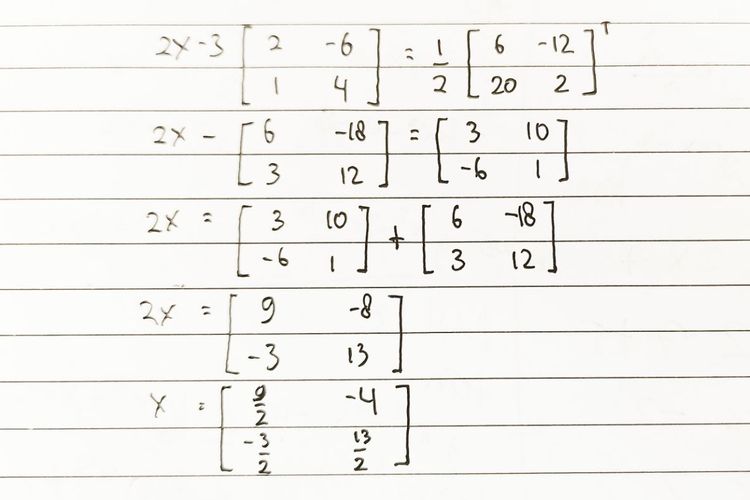 2x - 3 [2 -6; 1 4] = 1/2 [6 -12; 20 2]ᵀ
2x - [6 -18; 3 12] = [3 10; -6 1]
2x = [3 10; -6 1] + [6 -18; 3 12]
2x = [9 -8; -3 13]
x = [9/2 -4; -3/2 13/2]